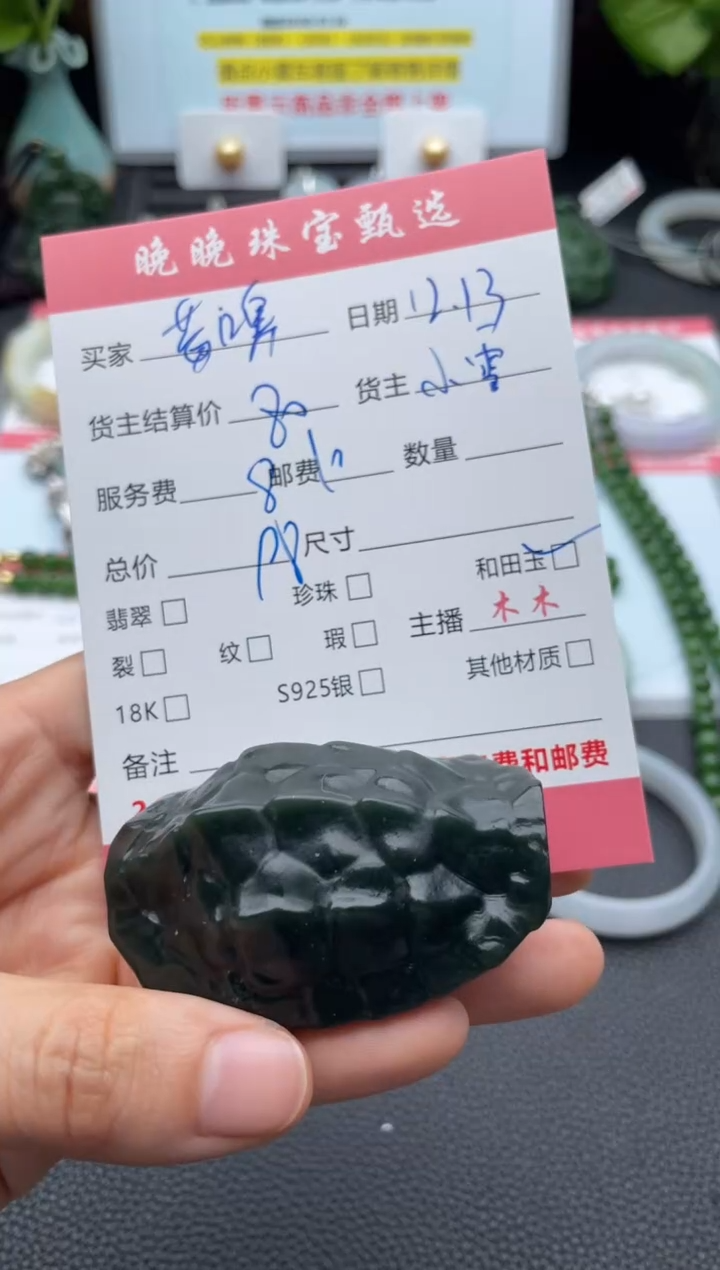 晚晚珠宝甄选
买家 日期 12.13
货主结算价 80 货主 小雪
服务费 8 邮费 10 数量
总价 98 尺寸
翡翠 珍珠 和田玉
裂 纹 瑕 主播 木木
18K S925银 其他材质
备注
费和邮费